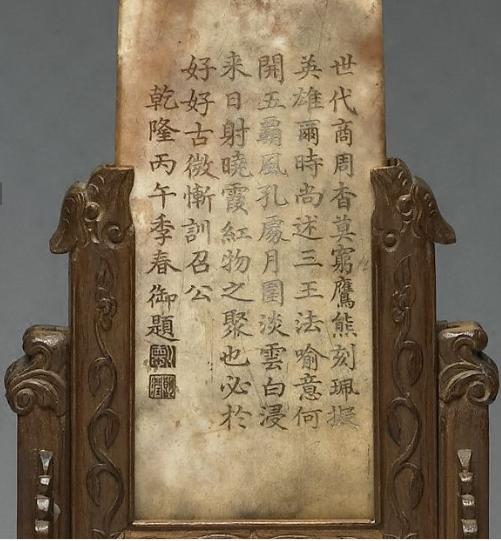 世代商周杳莫窮鷹熊刻珮擬
英雄爾時尚述三王法喻意何
開五霸風孔處月圓淡雲白浸
来日射曉霞紅物之聚也必於
好好古微慚訓召公
乾隆丙午季春御題